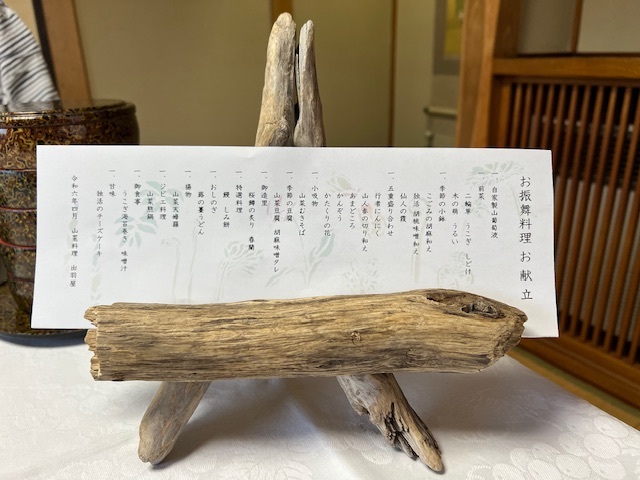 お振舞料理 お献立
一 自家製山葡萄液
一 前菜
二輪草 うこぎ しどけ
木の萌 うるい
一 季節の小鉢
こごみの胡麻和え
独活 胡桃味噌和え
仙人の霞
一 五重盛り合わせ
行者にんにく
山人参の切り和え
あまどころ
かんぞう
かたくりの花
一 小吸物
山菜むきそば
一 季節の豆腐
山菜豆腐 胡麻味噌タレ
一 御造里
桜鱒の炙り 春蘭
一 特選料理
鰻 しみ餅
一 おしのぎ
蕗の薹うどん
一 揚物
山菜天婦羅
一 ジビエ料理
山菜熊鍋
一 御食事
うこぎ海苔巻き 味噌汁
一 甘味
独活のチーズケーキ
令和六年四月 山菜料理 出羽屋